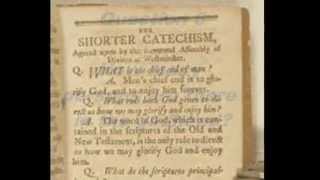 Question 6
THE
SHORTER CATECHISM,
Agreed upon by the Reverend Assembly of
Divines at Westminster.
Q. WHAT is the chief end of man?
A. Man's chief end is to glo-
rify God, and to enjoy him forever.
Q. What rule hath God given to di-
rect us how we may glorify and enjoy him?
A. The word of God, which is con-
tained in the scriptures of the Old and
New Testament, is the only rule to direct
us how we may glorify God and enjoy
him.
Q. What do the scriptures principal-